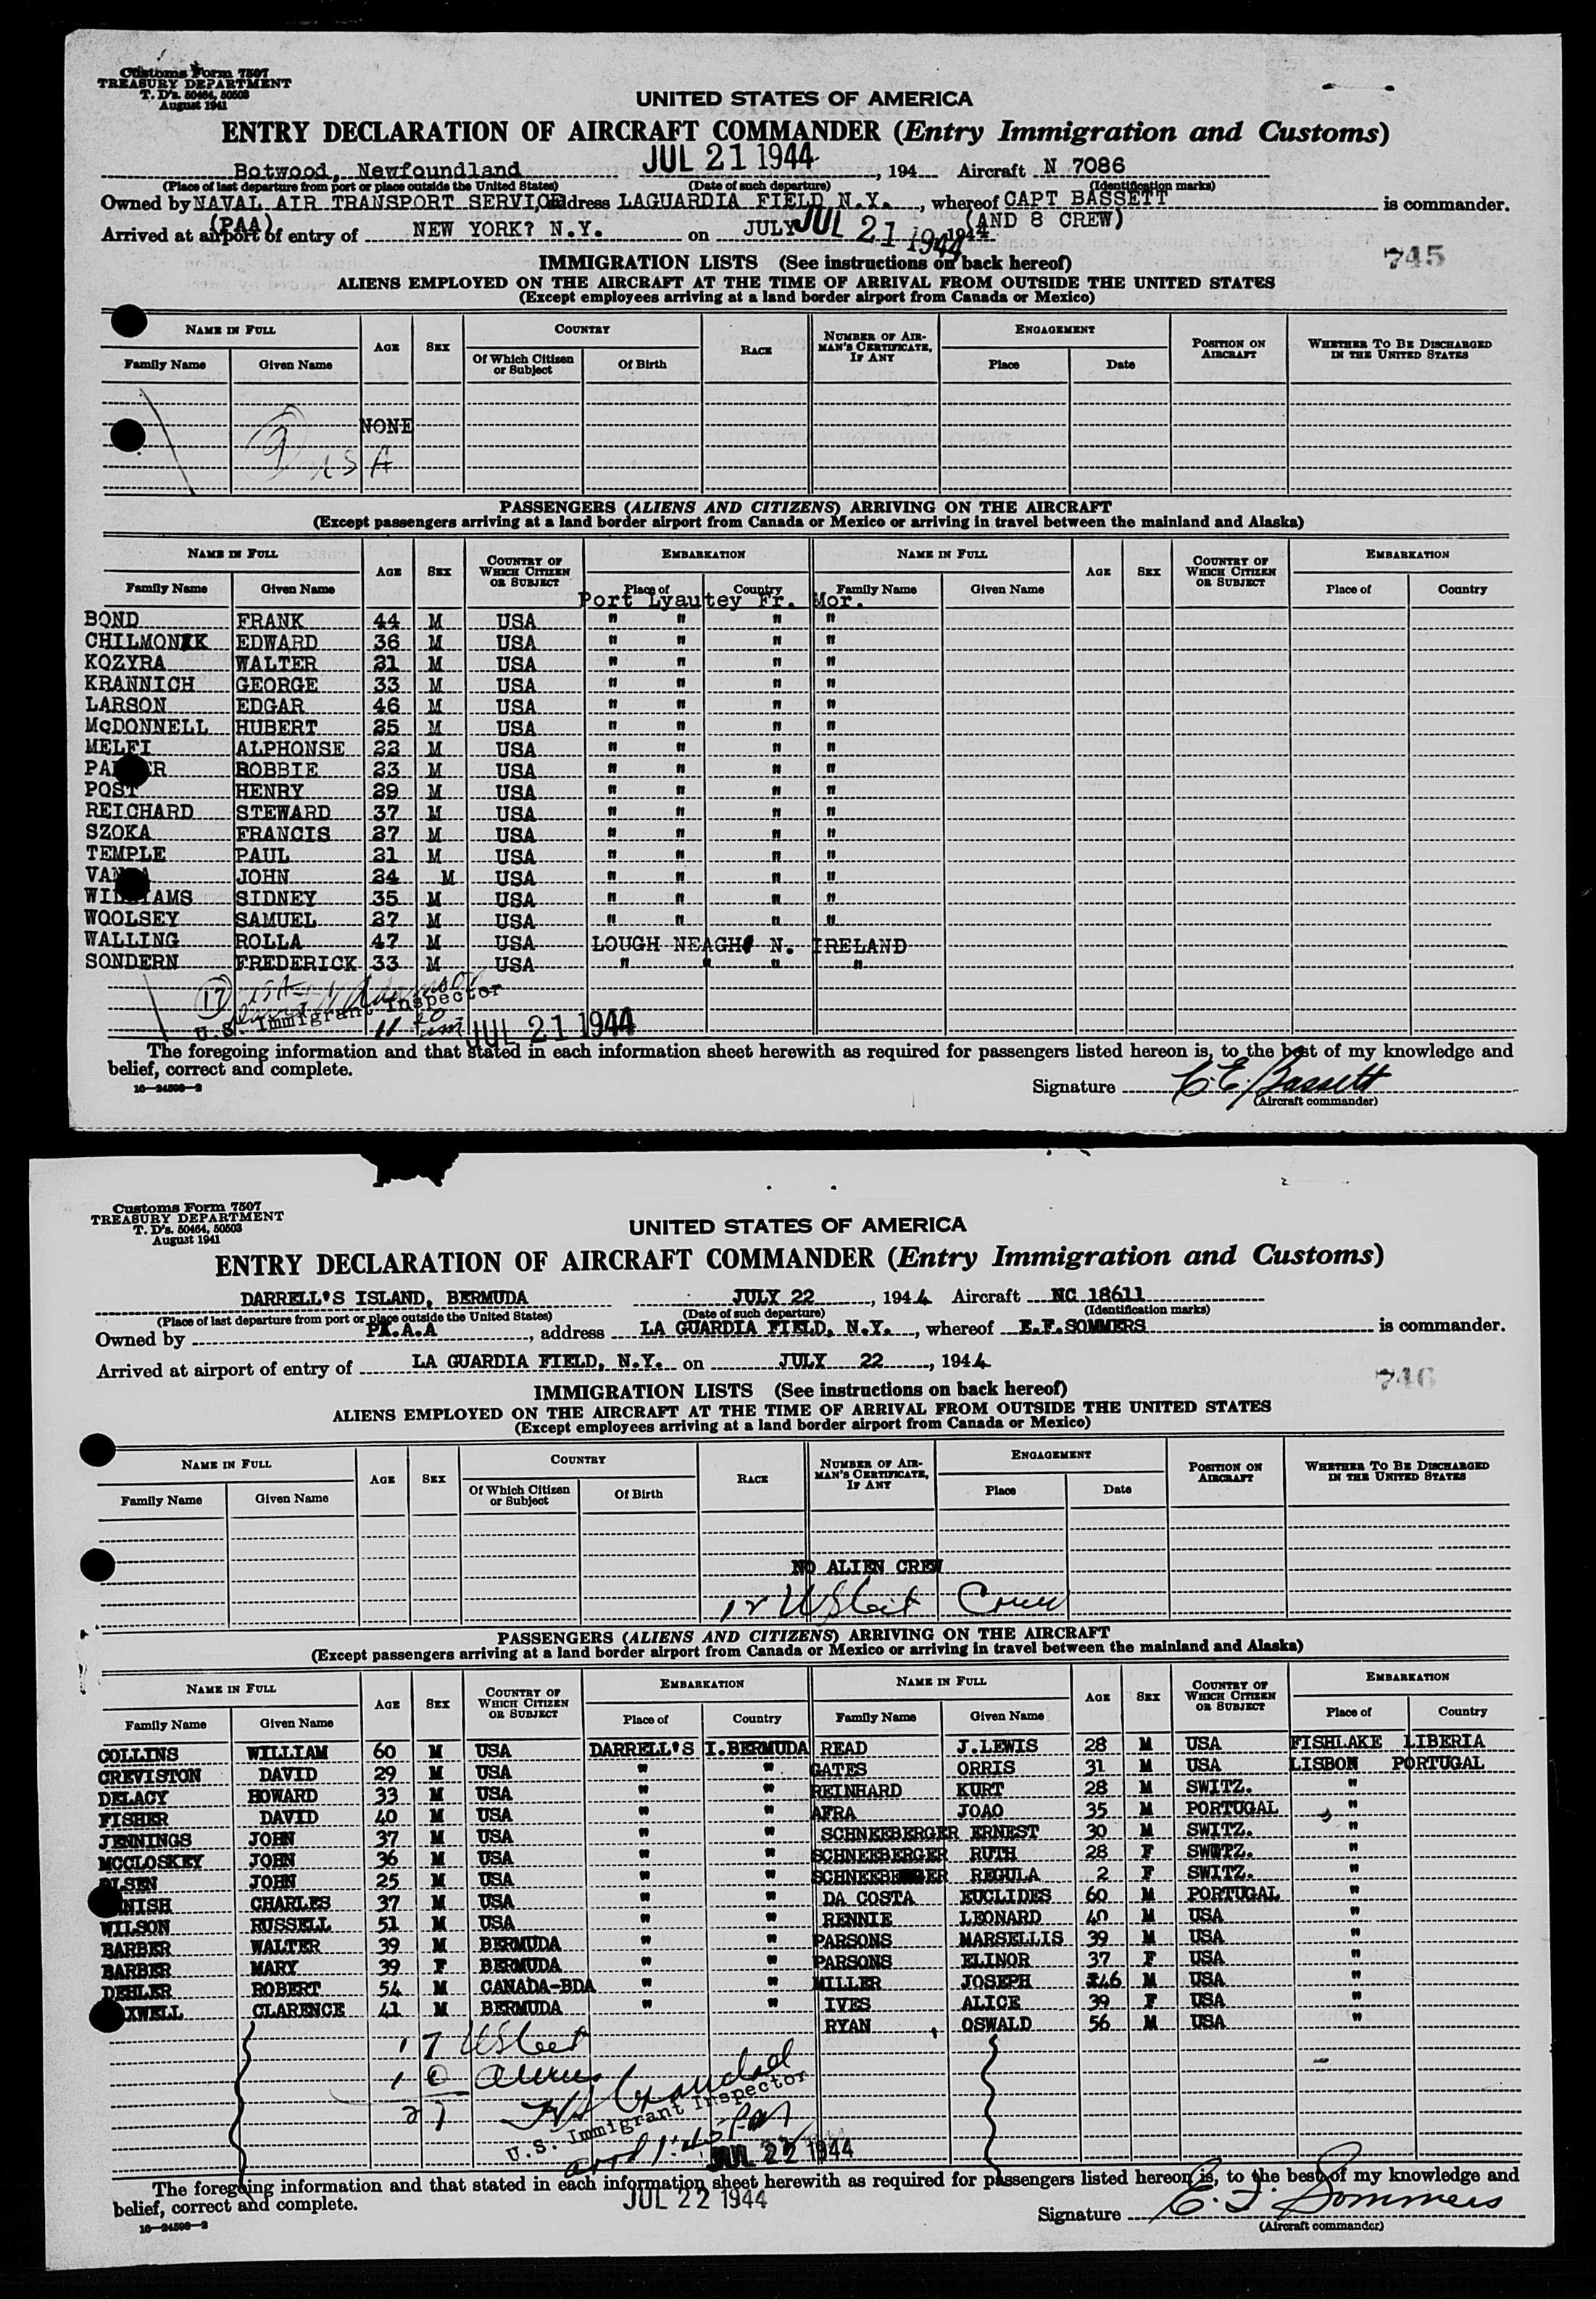 Customs Form 7507
TREASURY DEPARTMENT
T. D's. 50464, 50503
August 1941
UNITED STATES OF AMERICA
ENTRY DECLARATION OF AIRCRAFT COMMANDER (Entry Immigration and Customs)
Botwood, Newfoundland JUL 21 1944, 194 Aircraft N 7086
(Place of last departure from port or place outside the United States) (Date of such departure) (Identification marks)
Owned by NAVAL AIR TRANSPORT SERVICE, address LAGUARDIA FIELD N.Y., whereof CAPT BASSETT is commander.
(PAA) (AND 8 CREW)
Arrived at airport of entry of NEW YORK? N.Y. on JULY JUL 21 1944 1944
745
IMMIGRATION LISTS (See instructions on back hereof)
ALIENS EMPLOYED ON THE AIRCRAFT AT THE TIME OF ARRIVAL FROM OUTSIDE THE UNITED STATES
(Except employees arriving at a land border airport from Canada or Mexico)
NAME IN FULL AGE SEX COUNTRY RACE NUMBER OF AIRMAN'S CERTIFICATE, IF ANY ENGAGEMENT POSITION ON AIRCRAFT WHETHER TO BE DISCHARGED IN THE UNITED STATES
Family Name Given Name Of Which Citizen or Subject Of Birth Place Date
NONE
9 USA
PASSENGERS (ALIENS AND CITIZENS) ARRIVING ON THE AIRCRAFT
(Except passengers arriving at a land border airport from Canada or Mexico or arriving in travel between the mainland and Alaska)
NAME IN FULL AGE SEX COUNTRY OF WHICH CITIZEN OR SUBJECT EMBARKATION NAME IN FULL AGE SEX COUNTRY OF WHICH CITIZEN OR SUBJECT EMBARKATION
Family Name Given Name Place of Country Family Name Given Name Place of Country
Port Lyautey Fr. Mor.
BOND FRANK 44 M USA " " " "
CHILMONIK EDWARD 36 M USA " " " "
KOZYRA WALTER 21 M USA " " " "
KRANNICH GEORGE 33 M USA " " " "
LARSON EDGAR 46 M USA " " " "
McDONNELL HUBERT 25 M USA " " " "
MELFI ALPHONSE 22 M USA " " " "
PA R BOBBIE 23 M USA " " " "
POST HENRY 29 M USA " " " "
REICHARD STEWARD 37 M USA " " " "
SZOKA FRANCIS 27 M USA " " " "
TEMPLE PAUL 21 M USA " " " "
VAN JOHN 24 M USA " " " "
WILLIAMS SIDNEY 35 M USA " " " "
WOOLSEY SAMUEL 27 M USA " " " "
WALLING ROLLA 47 M USA LOUGH NEAGH N. IRELAND
SONDERN FREDERICK 33 M USA " " " "
17 USA
U.S. Immigrant Inspector
JUL 21 1944
The foregoing information and that stated in each information sheet herewith as required for passengers listed hereon is, to the best of my knowledge and
belief, correct and complete.
16—24598-2
Signature C. E. Bassett
(Aircraft commander)
Customs Form 7507
TREASURY DEPARTMENT
T. D's. 50464, 50503
August 1941
UNITED STATES OF AMERICA
ENTRY DECLARATION OF AIRCRAFT COMMANDER (Entry Immigration and Customs)
DARRELL'S ISLAND, BERMUDA JULY 22, 1944 Aircraft NC 18611
(Place of last departure from port or place outside the United States) (Date of such departure) (Identification marks)
Owned by PA.A.A, address LA GUARDIA FIELD, N.Y., whereof E.F.SOMMERS is commander.
Arrived at airport of entry of LA GUARDIA FIELD, N.Y. on JULY 22, 1944
746
IMMIGRATION LISTS (See instructions on back hereof)
ALIENS EMPLOYED ON THE AIRCRAFT AT THE TIME OF ARRIVAL FROM OUTSIDE THE UNITED STATES
(Except employees arriving at a land border airport from Canada or Mexico)
NAME IN FULL AGE SEX COUNTRY RACE NUMBER OF AIRMAN'S CERTIFICATE, IF ANY ENGAGEMENT POSITION ON AIRCRAFT WHETHER TO BE DISCHARGED IN THE UNITED STATES
Family Name Given Name Of Which Citizen or Subject Of Birth Place Date
NO ALIEN CREW
12 US Cit Crew
PASSENGERS (ALIENS AND CITIZENS) ARRIVING ON THE AIRCRAFT
(Except passengers arriving at a land border airport from Canada or Mexico or arriving in travel between the mainland and Alaska)
NAME IN FULL AGE SEX COUNTRY OF WHICH CITIZEN OR SUBJECT EMBARKATION NAME IN FULL AGE SEX COUNTRY OF WHICH CITIZEN OR SUBJECT EMBARKATION
Family Name Given Name Place of Country Family Name Given Name Place of Country
COLLINS WILLIAM 60 M USA DARRELL'S I.BERMUDA READ J.LEWIS 28 M USA FISHLAKE LIBERIA
CREVISTON DAVID 29 M USA " " GATES ORRIS 31 M USA LISBON PORTUGAL
DELACY HOWARD 33 M USA " " REINHARD KURT 28 M SWITZ. "
FISHER DAVID 40 M USA " " AFRA JOAO 35 M PORTUGAL "
JENNINGS JOHN 37 M USA " " SCHNEEBERGER ERNEST 30 M SWITZ. "
MCCLOSKEY JOHN 36 M USA " " SCHNEEBERGER RUTH 28 F SWITZ. "
OLSEN JOHN 25 M USA " " SCHNEEBERGER REGULA 2 F SWITZ. "
NISH CHARLES 37 M USA " " DA COSTA EUCLIDES 60 M PORTUGAL "
WILSON RUSSELL 51 M USA " " RENNIE LEONARD 40 M USA "
BARBER WALTER 39 M BERMUDA " " PARSONS MARSELLIS 39 M USA "
BARBER MARY 39 F BERMUDA " " PARSONS ELINOR 37 F USA "
DEHLER ROBERT 54 M CANADA-BDA " " MILLER JOSEPH 46 M USA "
XWELL CLARENCE 41 M BERMUDA " " IVES ALICE 39 F USA "
RYAN OSWALD 56 M USA "
17 US Cit
10 Aliens
27
U.S. Immigrant Inspector
arr 1:45 PM
JUL 22 1944
The foregoing information and that stated in each information sheet herewith as required for passengers listed hereon is, to the best of my knowledge and
belief, correct and complete.
JUL 22 1944
16—24598-2
Signature E. F. Sommers
(Aircraft commander)